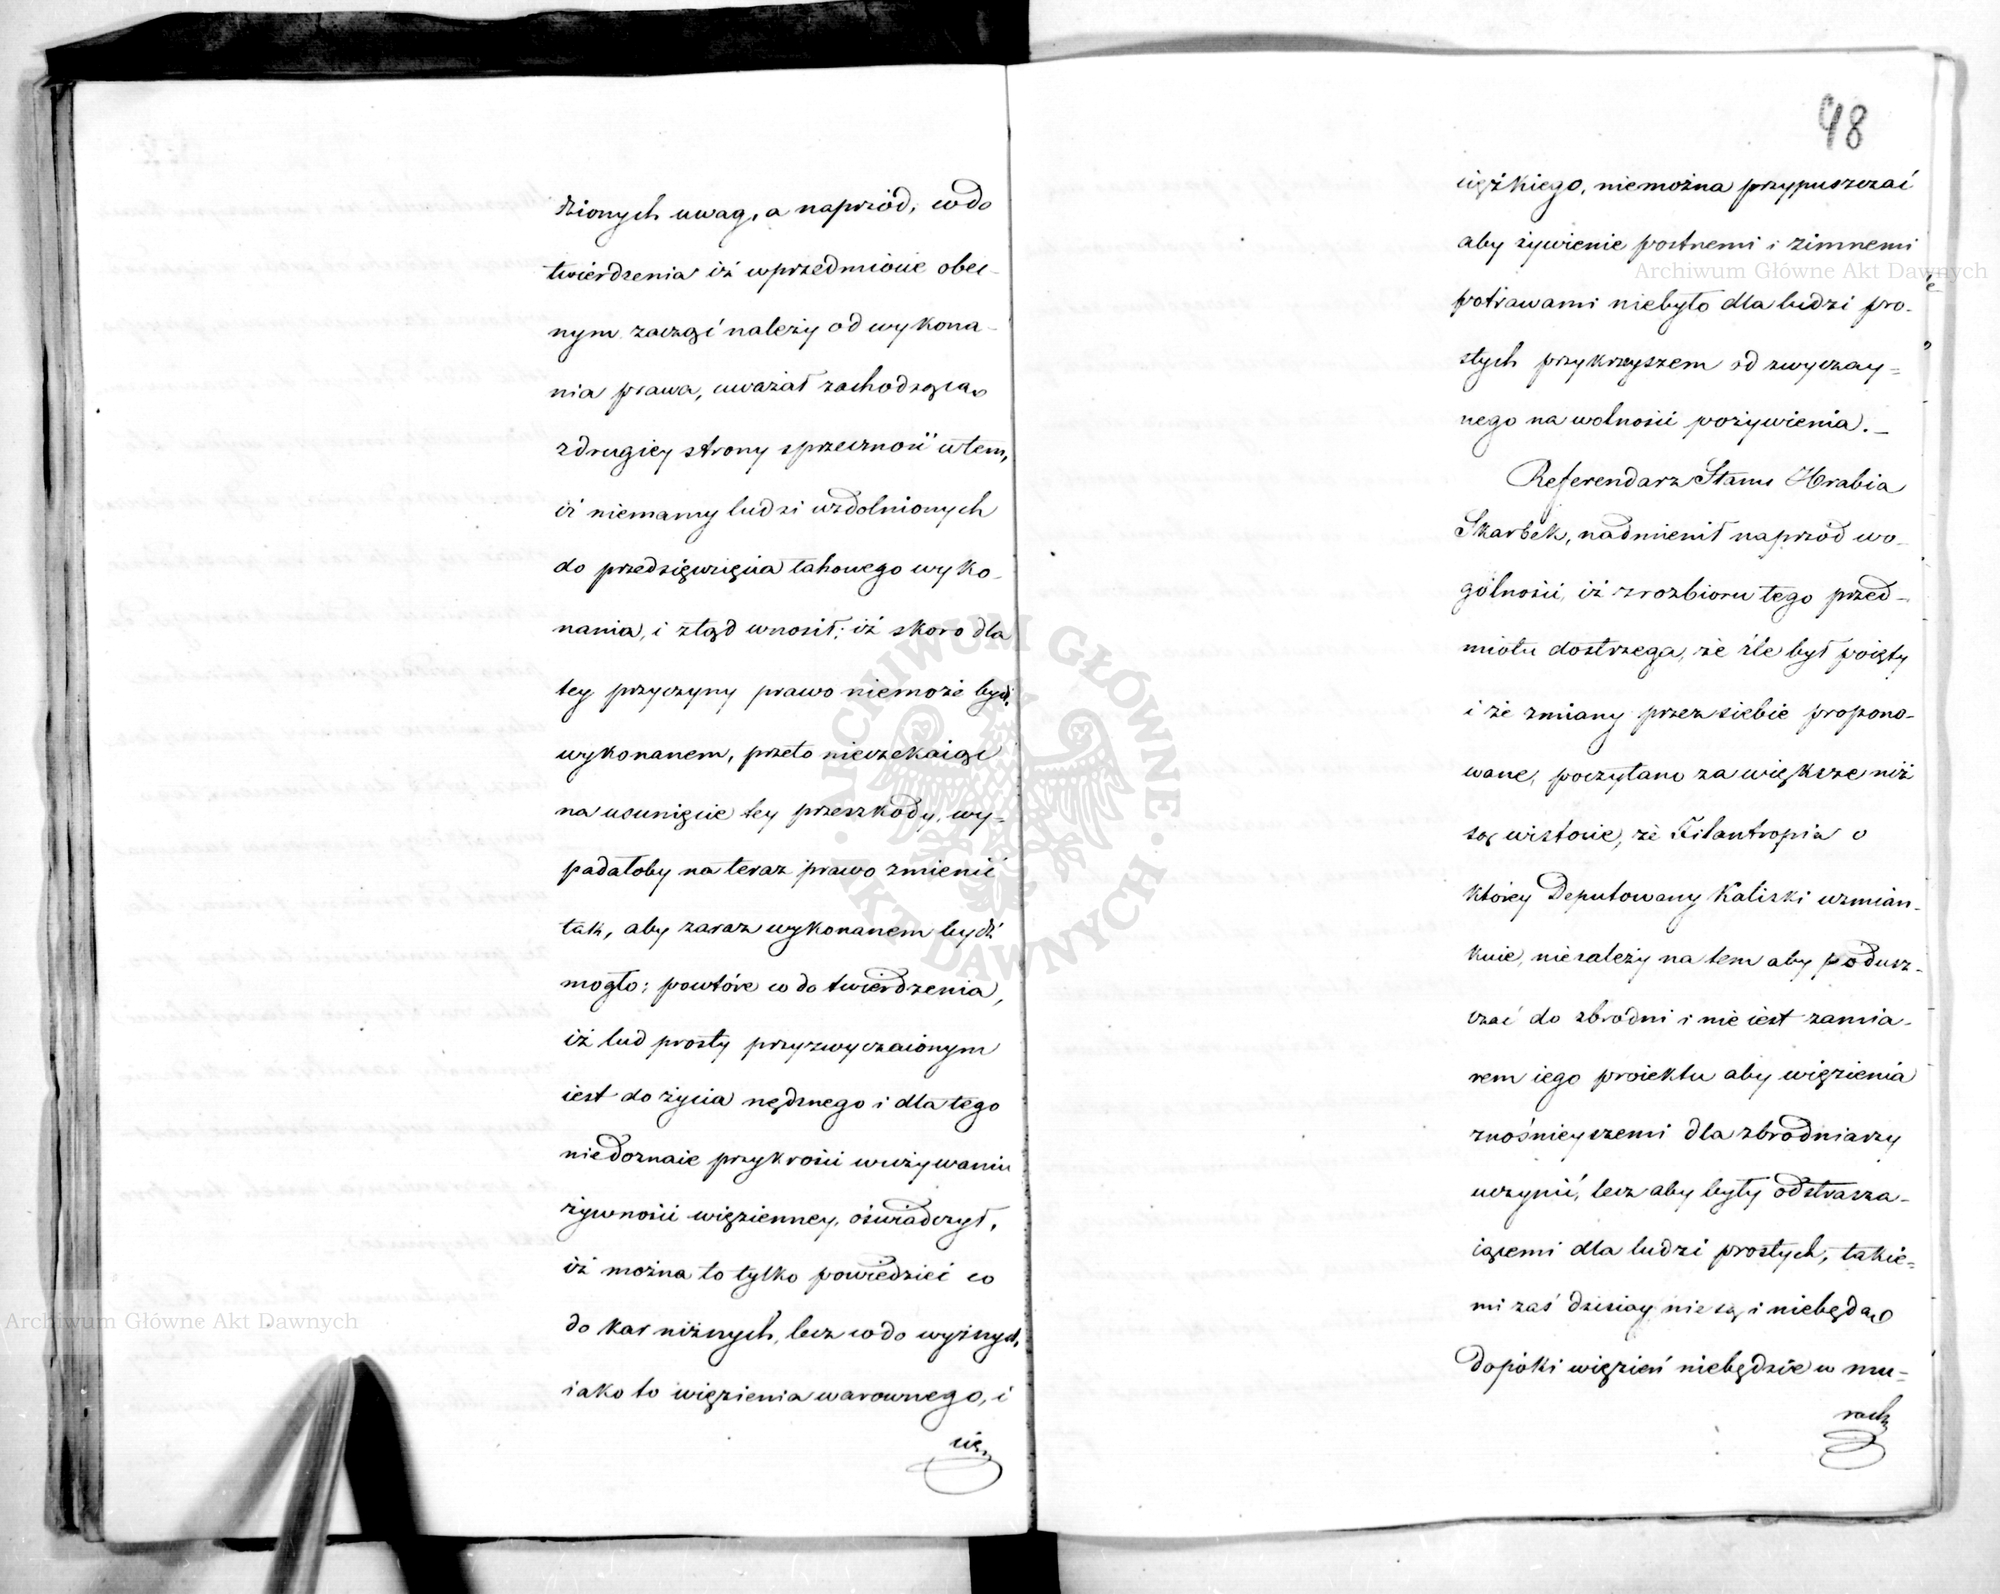 dzionych uwag, a naprzód, codo
twierdzenia iż wprzedmiocie obec-
nym zacząć należy od wykona-
nia prawa, uważał zachodzącą
zdrugiey strony sprzeczność wtem,
iż niemamy ludzi uzdolnionych
do przedsięwzięcia takowego wyko-
nania, i ztąd wnosił; iż skoro dla
tey przyczyny prawo niemoże bydź
wykonanem, przeto nieczekaiąc
na usunięcie tey przeszkody, wy-
padałoby na teraz prawo zmienić
tak, aby zaraz wykonanem bydź
mogło; powtóre co do twierdzenia,
iż lud prosty przyzwyczaionym
iest do życia nędznego i dla tego
niedoznaie przykrości wużywaniu
żywności więzienney, oświadczył,
iż można to tylko powiedzieć co
do kar niżnych, lecz codo wyżnych,
iako to więzienia warownego, i
cięż
98
ciężkiego, niemożna przypuszczać
aby żywienie postnemi i zimnemi
potrawami niebyło dla ludzi pro-
stych przykrzyszem od zwyczay-
nego na wolności pożywienia.-
Referendarz Stanu Hrabia
Skarbek, nadmienił naprzód wo-
gólności, iż zrozbioru tego przed-
miotu dostrzega, że źle był poięty
i że zmiany przez siebie propono-
wane, poczytano za większe niż
są wistocie, że Filantropia o
którey Deputowany Kaliski wzmian-
kuie, niezależy na tem aby podusz-
czać do zbrodni i nie iest zamia-
rem iego proiektu aby więzienia
znośnieyszemi dla zbrodniarzy
uczynić, lecz aby były odstrasza-
iącemi dla ludzi prostych, takie-
mi zaś dzisiay nie są i niebędą
dopóki więzień niebędzie w mu-
rach
Archiwum Główne Akt Dawnych
Archiwum Główne Akt Dawnych
ARCHIWUM GŁÓWNE
AKT DAWNYCH